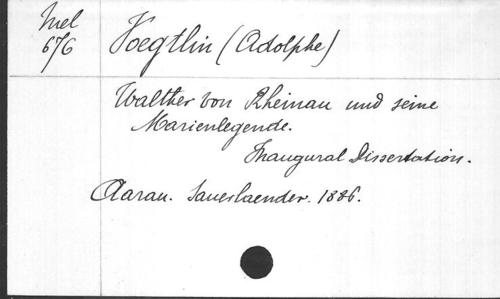 Mel
676
Voegtlin (Adolphe)
Walther von Rheinau und seine
Marienlegende.
Inaugural Dissertation.
Aarau. Sauerlaender. 1886.